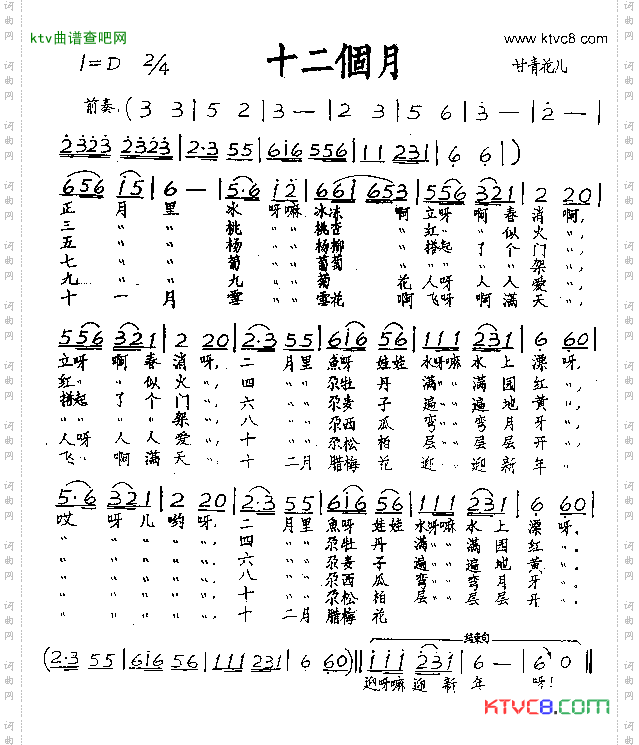 ktv曲谱查吧网
www.ktvc8.com
1=D 2/4
十二個月
甘青花儿
前奏:(3 3 | 5 2 | 3 — | 2 3 | 5 6 | 3 — | 2 — |
2323 2323 | 2·3 55 | 6i6 556 | 11 231 | 6 6 )
656 i5 | 6 — | 5·6 i2 | 66i 653 | 556 321 | 2 20 |
正 月 里 冰 呀嘛 冰冻 啊 立呀 啊春 消 啊,
三 〃 〃 桃 〃 〃 桃杏 〃 红〃 似 火 〃,
五 〃 〃 杨 〃 〃 杨柳 〃 搭起 了个 门 〃,
七 〃 〃 葡 〃 〃 葡萄 〃 〃 〃 〃 架 〃,
九 〃 〃 九 〃 〃 菊 花 人呀 人人 爱 〃,
十 一 月 雪 〃 〃 雪花 啊 飞呀 啊满 天 〃,
556 321 | 2 20 | 2·3 55 | 6i6 556 | 111 231 | 6 60 |
立呀 啊春 消 呀, 二 月里 魚呀 娃娃 水呀嘛 水上 漂 呀,
红〃 似 火 〃, 四 〃〃 尕牡 丹 满〃〃 满园 红 〃,
搭起 了个 门 〃, 六 〃〃 尕麦 子 遍〃〃 遍地 黄 〃,
〃 〃 〃 架 〃, 八 〃〃 尕西 瓜 弯〃〃 弯月 牙 〃,
人呀 人人 爱 〃, 十 〃〃 尕松 柏 层〃〃 层层 开 〃,
飞〃 啊满 天 〃, 十 二月 腊梅 花 迎〃〃 迎新 年 〃
5·6 321 | 2 20 | 2·3 55 | 6i6 556 | 111 231 | 6 60 |
哎 呀儿 哟 呀, 二 月里 魚呀 娃娃 水呀嘛 水上 漂 呀.
〃 〃 〃 〃, 四 〃〃 尕牡 丹 满〃〃 满园 红 〃.
〃 〃 〃 〃, 六 〃〃 尕麦 子 遍〃〃 遍地 黄 〃.
〃 〃 〃 〃, 八 〃〃 尕西 瓜 弯〃〃 弯月 牙 〃.
〃 〃 〃 〃, 十 〃〃 尕松 柏 层〃〃 层层 开 〃.
〃 〃 〃 〃, 十 二月 腊梅 花
结束句
(2·3 55 | 6i6 556 | 111 231 | 6 60) || iii 2̇3̇i | 6 — | 6 0 ||
迎呀嘛 迎 新 年 呀!
KTVC8.com